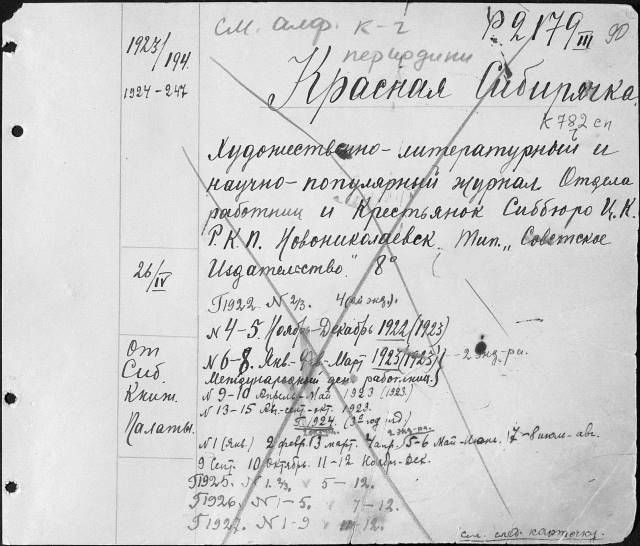 см. алф. к-г
периодики
Р 2179/III 90
1923/194.
1924-247
Красная Сибирячка.
К 782 сп
Художественно-литературный и
научно-популярный журнал Отдела
работниц и Крестьянок Сиббюро Ц.К.
Р.К.П. Новониколаевск. Тип. „Советское
26/IV
Издательство" 8°
Г1922 N 2/3. 4
N 4-5. Ноябрь-Декабрь 1922 (1923)
От
Сиб.
Книж.
Палаты.
N 6-8. Янв.-Фев.-Март 1923 (1923) - 2 экз.
Международный день работниц.
N 9-10 Апрель-Май 1923 (1923.)
N 13-15 Ав.-сент.-окт. 1923.
Г1924. (3й год изд)
N1 (Янв) 2 февр. 3 март. 4 апр. 5-6 Май-Июнь. 7-8 июль-авг.
9 Сент. 10 Октябрь. 11-12 Ноябрь-Дек.
Г1925. N 1. 2/3. 5-12.
Г1926. N1-5. 7-12.
Г1927. N1-9 -12.
см. след. карточку.